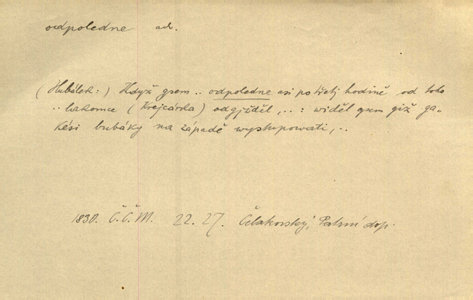 odpoledne ad.
(Hubálek:) Když gsem .. odpoledne asi po třetj hodině od toho
.. lakomce (Krejcárka) odgjžděl, .. : widěl gsem giž ga-
kési bubáky na západě wystupowati, ..
1830. Č.Č.M. 22. 27. Čelakovský, Patrní dop.